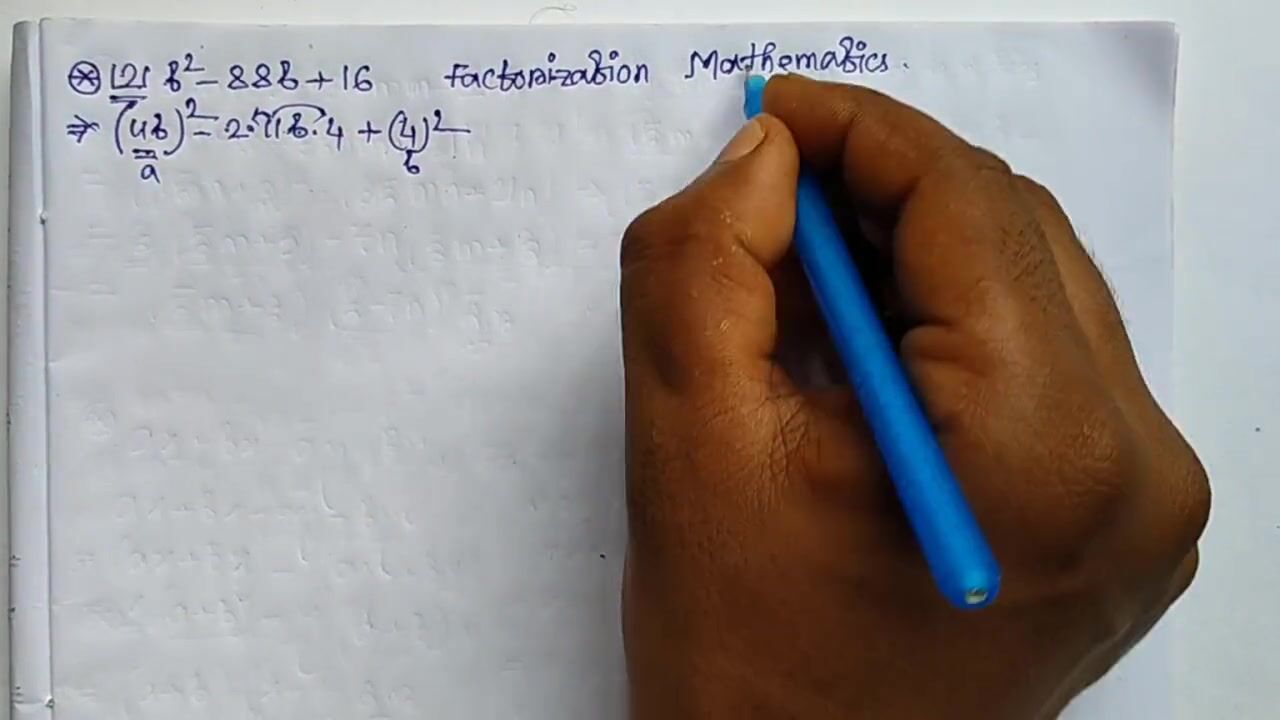 ⊛ 121 b² - 88b + 16 Factorization Mathematics.
⇒ (11b)² - 2.11b.4 + (4)²
a b